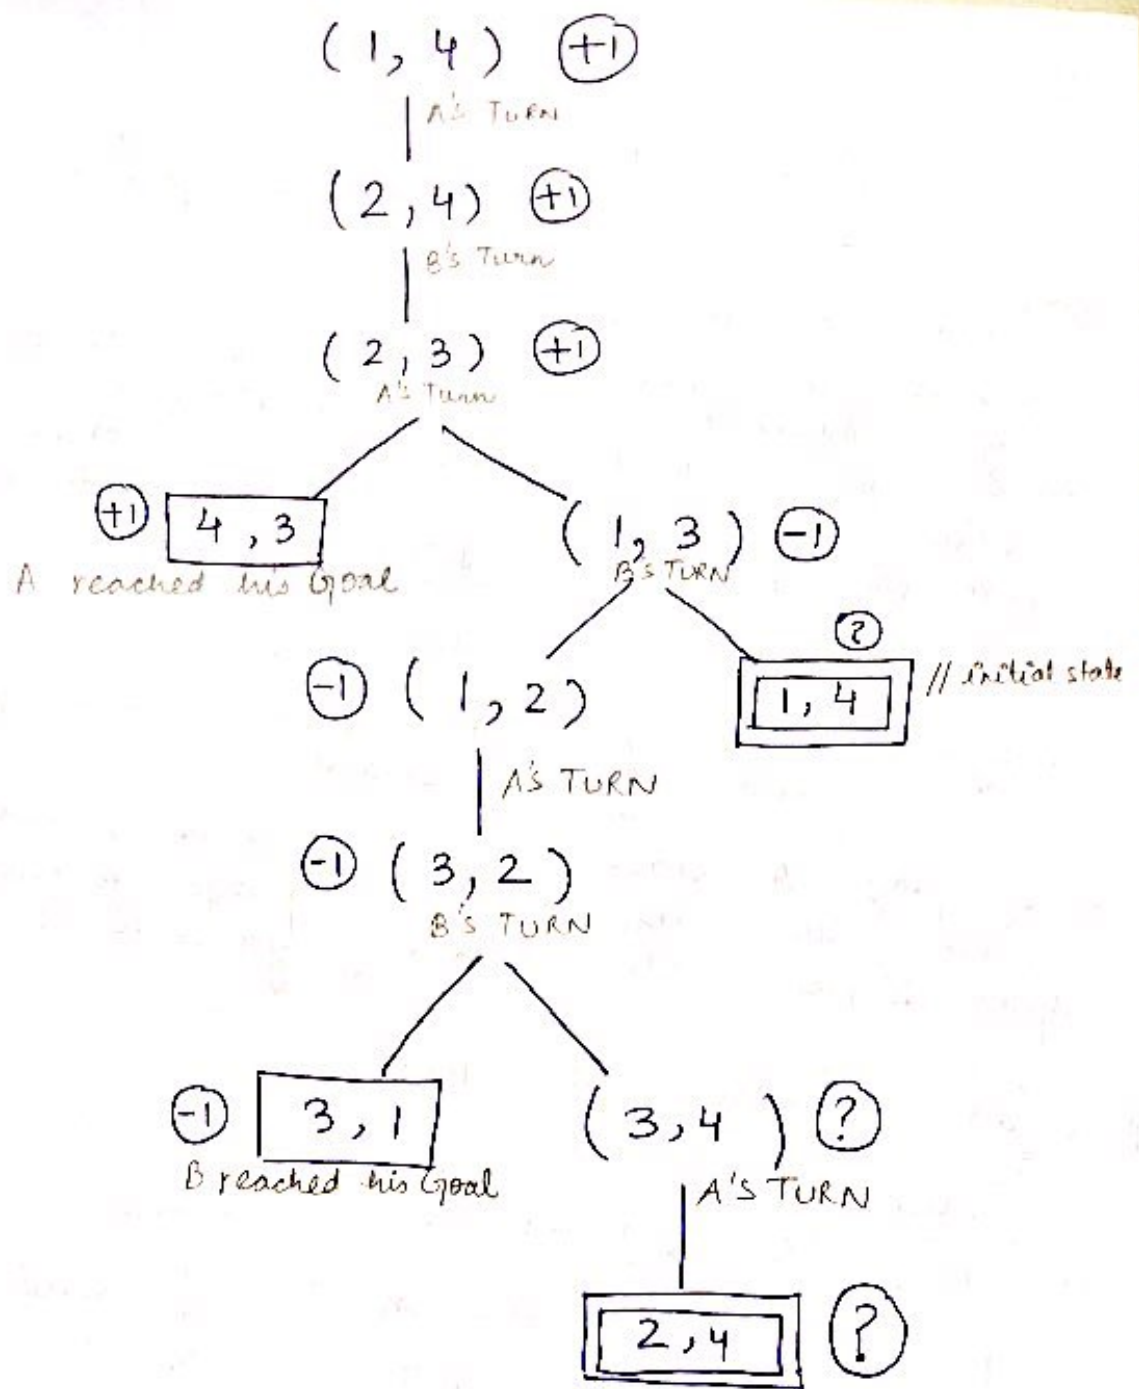 (1, 4) +1
A's TURN
(2, 4) +1
B's Turn
(2, 3) +1
A's Turn
+1 4, 3
A reached his Goal
(1, 3) -1
B's TURN
?
-1 (1, 2)
1, 4 // initial state
A'S TURN
-1 (3, 2)
B'S TURN
-1 3, 1
B reached his Goal
(3, 4) ?
A'S TURN
2, 4 ?